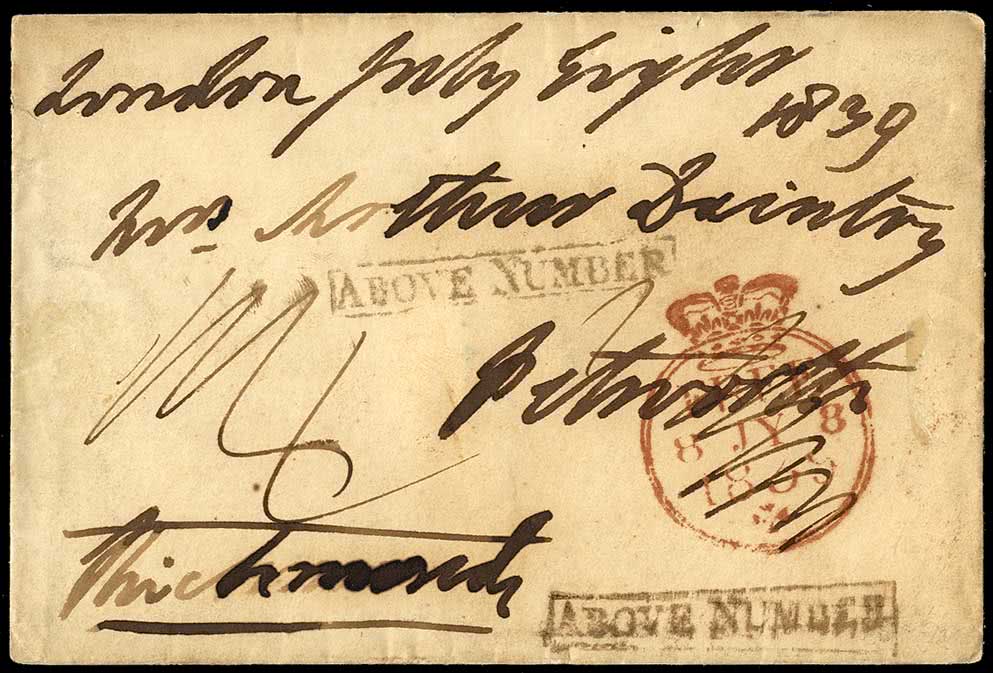 London July Eight
1839
Mrs Arthur Daintry
ABOVE NUMBER
Petworth
FREE
8 JY 8
1839
Richmond
ABOVE NUMBER